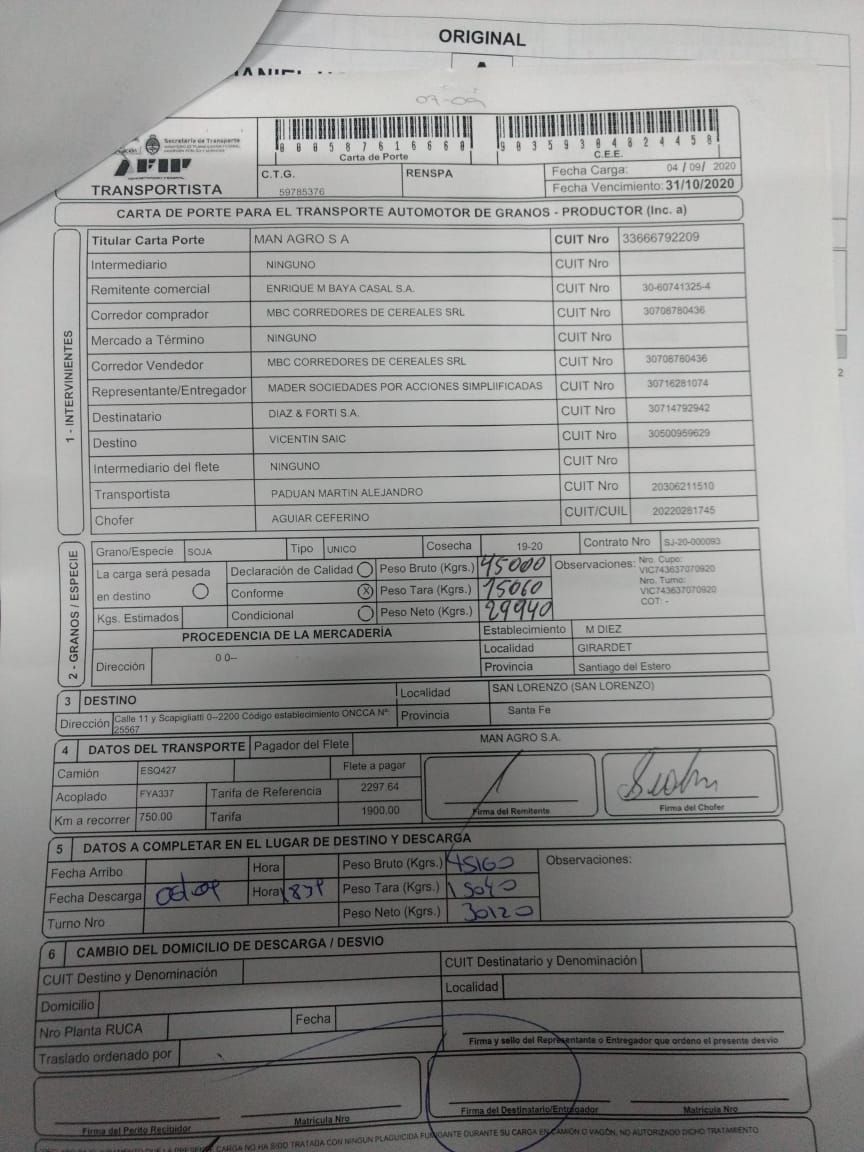 ORIGINAL
07-09
Secretaría de Transporte
AFIP
TRANSPORTISTA
Carta de Porte
C.E.E.
C.T.G.
59785376
RENSPA
Fecha Carga: 04 / 09 / 2020
Fecha Vencimiento: 31/10/2020
CARTA DE PORTE PARA EL TRANSPORTE AUTOMOTOR DE GRANOS - PRODUCTOR (Inc. a)
1 - INTERVINIENTES
Titular Carta Porte MAN AGRO S A CUIT Nro 33666792209
Intermediario NINGUNO CUIT Nro
Remitente comercial ENRIQUE M BAYA CASAL S.A. CUIT Nro 30-60741325-4
Corredor comprador MBC CORREDORES DE CEREALES SRL CUIT Nro 30708780436
Mercado a Término NINGUNO CUIT Nro
Corredor Vendedor MBC CORREDORES DE CEREALES SRL CUIT Nro 30708780436
Representante/Entregador MADER SOCIEDADES POR ACCIONES SIMPLIIFICADAS CUIT Nro 30716281074
Destinatario DIAZ & FORTI S.A. CUIT Nro 30714792942
Destino VICENTIN SAIC CUIT Nro 30500959629
Intermediario del flete NINGUNO CUIT Nro
Transportista PADUAN MARTIN ALEJANDRO CUIT Nro 20306211510
Chofer AGUIAR CEFERINO CUIT/CUIL 20220281745
2 - GRANOS / ESPECIE
Grano/Especie SOJA Tipo UNICO Cosecha 19-20 Contrato Nro SJ-20-000093
La carga será pesada en destino
Declaración de Calidad Peso Bruto (Kgrs.) 45000
Conforme X Peso Tara (Kgrs.) 15060
Kgs. Estimados Condicional Peso Neto (Kgrs.) 29940
Observaciones: Nro. Cupo:
VIC743637070920
Nro. Turno:
VIC743637070920
COT: -
PROCEDENCIA DE LA MERCADERÍA
Dirección 0 0--
Establecimiento M DIEZ
Localidad GIRARDET
Provincia Santiago del Estero
3 DESTINO
Dirección Calle 11 y Scapigliatti 0--2200 Código establecimiento ONCCA Nº: 25567
Localidad SAN LORENZO (SAN LORENZO)
Provincia Santa Fe
4 DATOS DEL TRANSPORTE Pagador del Flete MAN AGRO S.A.
Camión ESQ427 Flete a pagar
Acoplado FYA337 Tarifa de Referencia 2297.64
Km a recorrer 750.00 Tarifa 1900.00
Firma del Remitente Firma del Chofer
5 DATOS A COMPLETAR EN EL LUGAR DE DESTINO Y DESCARGA
Fecha Arribo Hora Peso Bruto (Kgrs.) 45160 Observaciones:
Fecha Descarga Hora Peso Tara (Kgrs.) 15040
Turno Nro Peso Neto (Kgrs.) 30120
6 CAMBIO DEL DOMICILIO DE DESCARGA / DESVIO
CUIT Destino y Denominación CUIT Destinatario y Denominación
Domicilio Localidad
Nro Planta RUCA Fecha
Firma y sello del Representante o Entregador que ordeno el presente desvio
Traslado ordenado por
Firma del Perito Recibidor Matricula Nro Firma del Destinatario/Entregador Matricula Nro
CARGA NO HA SIDO TRATADA CON NINGUN PLAGUICIDA FUMIGANTE DURANTE SU CARGA EN CAMIÓN O VAGÓN, NO AUTORIZADO DICHO TRATAMIENTO